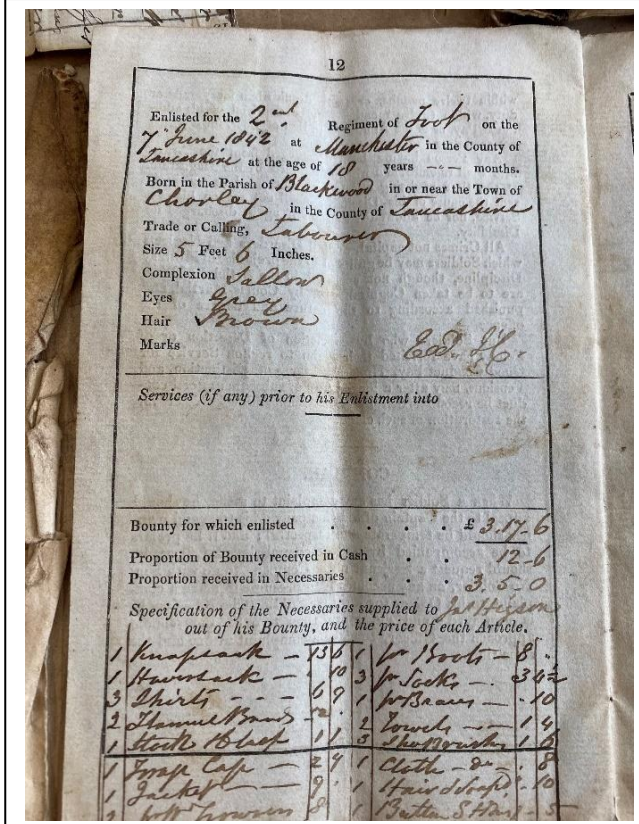 12
Enlisted for the 2nd Regiment of Foot on the
7 June 1842 at Manchester in the County of
Lancashire at the age of 18 years -"- months.
Born in the Parish of Blackwood in or near the Town of
Chorley in the County of Lancashire
Trade or Calling, Labourer
Size 5 Feet 6 Inches.
Complexion Sallow
Eyes Grey
Hair Brown
Marks
Services (if any) prior to his Enlistment into
Bounty for which enlisted . . . . £ 3.17.6
Proportion of Bounty received in Cash . . 12-6
Proportion received in Necessaries . . . 3.5.0
Specification of the Necessaries supplied to Jas Higson
out of his Bounty, and the price of each Article.
1 Knapsack - 13 6 1 pr Boots - 8 "
1 Haversack - 10 3 pr Socks - 3 4½
3 Shirts - - - 6 9 1 pr Braces - 10
2 Flannel 2 Towels - 1 4
1 Stock & Clasp 1 1 3 Shoe Brushes 1 6
1 Forage Cap - 2 4 1 Cloth - do - . 8
1 Jacket - 9 . 1 - 10
Trowsers 8 1 Button S - 5